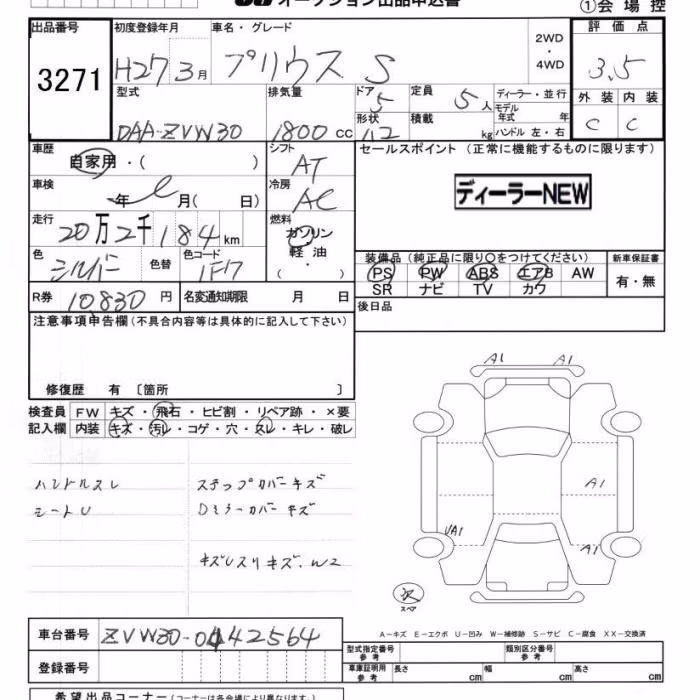 オークション出品申込書
①会場控
出品番号
3271
初度登録年月
H27 3月
車名・グレード
プリウス S
2WD
・
4WD
評価点
3.5
外装 内装
C C
型式
DAA-ZVW30
排気量
1800 cc
ドア
5
形状
定員
5人
積載
kg
ディーラー・並行
モデル年式 年
ハンドル 左・右
車歴
自家用・( )
シフト
AT
車検
年 月( 日)
冷房
AC
走行
20万2千184 km
燃料
ガソリン
軽油
( ・ )
色
シルバー
色替
色コード
1F7
R券
10830 円
名変通知期限 月 日
セールスポイント (正常に機能するものに限ります)
ディーラーNEW
装備品(純正品に限り○をつけてください)
PS PW ABS エアB AW
SR ナビ TV カワ
新車保証書
有・無
後日品
注意事項申告欄(不具合内容等は具体的に記入して下さい)
修復歴 有 〔箇所 〕
検査員
記入欄
FW キズ・飛石・ヒビ割・リペア跡・×要
内装 キズ・汚レ・コゲ・穴・スレ・キレ・破レ
ハンドルスレ
シートU
ステップカバーキズ
Dミラーカバーキズ
キズレスリキズ.W2
A1 A1
A1
UA1
A1
スペア
車台番号
ZVW30-0442564
登録番号
A-キズ E-エクボ U-凹み W-補修跡 S-サビ C-腐食 XX-交換済
型式指定番号
参考
類別区分番号
参考
車庫証明用
参考
長さ cm 幅 cm 高さ cm
希望出品コーナー(コーナーは各会場により異なります)